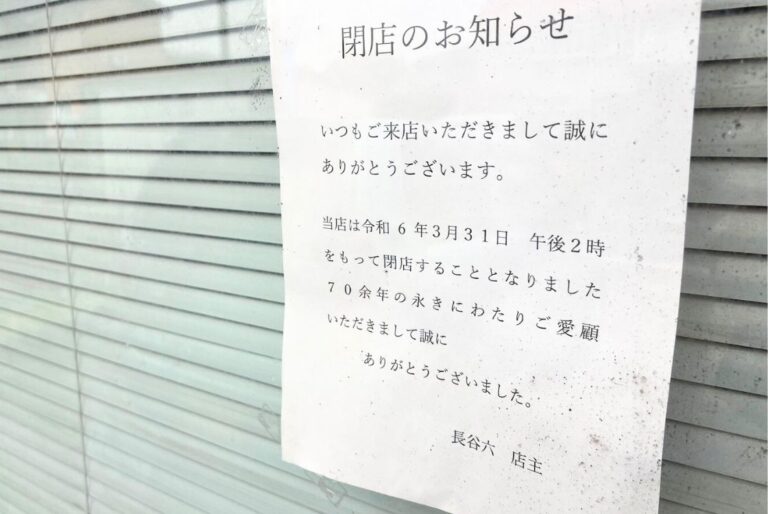 閉店のお知らせ
いつもご来店いただきまして誠に
ありがとうございます。
当店は令和６年３月３１日　午後２時
をもって閉店することとなりました
７０余年の永きにわたりご愛顧
いただきまして誠に
ありがとうございました。
長谷六　店主